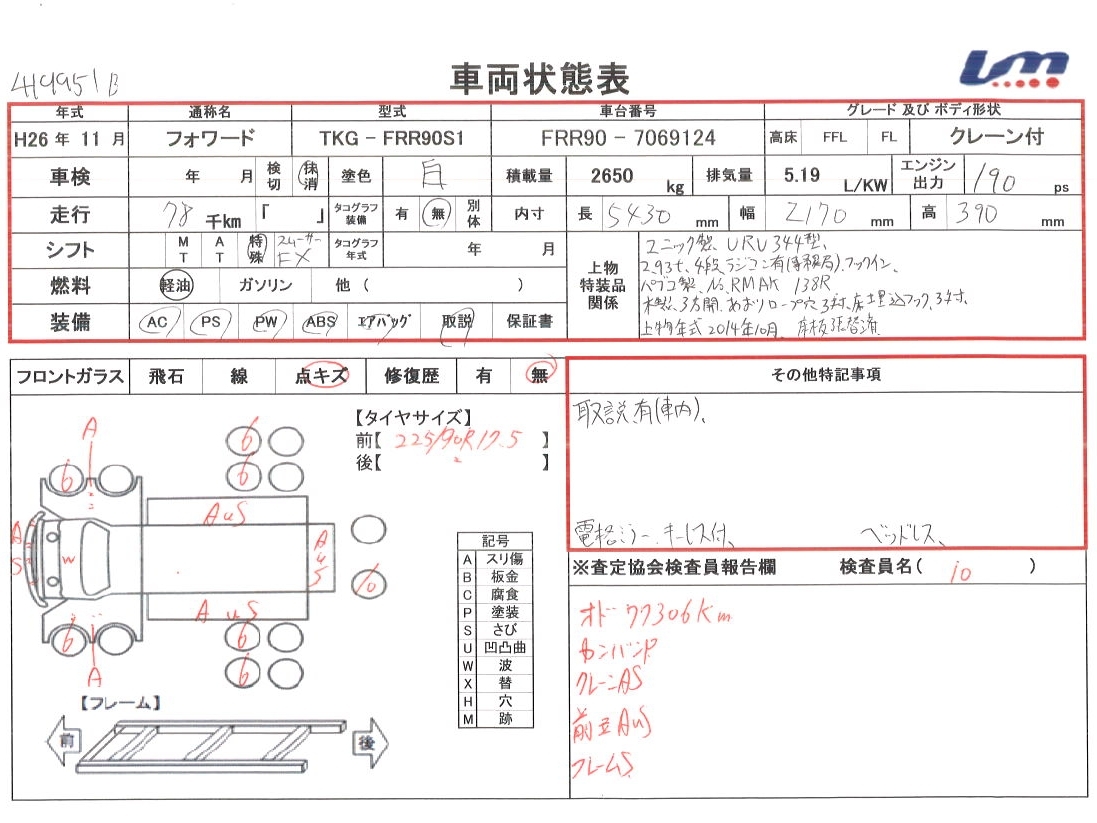 419951B
車両状態表
年式 通称名 型式 車台番号 グレード 及び ボディ形状
H26 年 11 月 フォワード TKG－FRR90S1 FRR90－7069124 高床 FFL FL クレーン付
車検 年 月 検切 抹消 塗色 白 積載量 2650 kg 排気量 5.19 L/KW エンジン出力 190 ps
走行 78 千km 「 」 タコグラフ装備 有 無 別体 内寸 長 5430 mm 幅 2170 mm 高 390 mm
シフト MT AT 特殊 スムーサーFX タコグラフ年式 年 月
燃料 軽油 ガソリン 他 ( )
装備 AC PS PW ABS エアバッグ 取説 保証書
上物特装品関係
ユニック製、URU344型、
2.93t、4段、ラジコン有(専務局)、フックイン、
パブコ製、No.RMAK 138R
木製、3方開、あおりロープ穴3対、床埋込フック、3対、
上物年式2014年10月、床板張替済
フロントガラス 飛石 線 点キズ 修復歴 有 無
その他特記事項
取説有(車内)、
電格ミラー、キーレス付、 ベッドレス、
【タイヤサイズ】
前【 225/90R17.5 】
後【 〃 】
A
6 6
6
AuS
A S W AuS
10
AuS
6 6
6
A
記号
A スリ傷
B 板金
C 腐食
P 塗装
S さび
U 凹凸曲
W 波
X 替
H 穴
M 跡
【フレーム】
前 後
※査定協会検査員報告欄 検査員名( io )
オド 77306Km
カンバンP
クレーンAS
前立AuS
フレームS